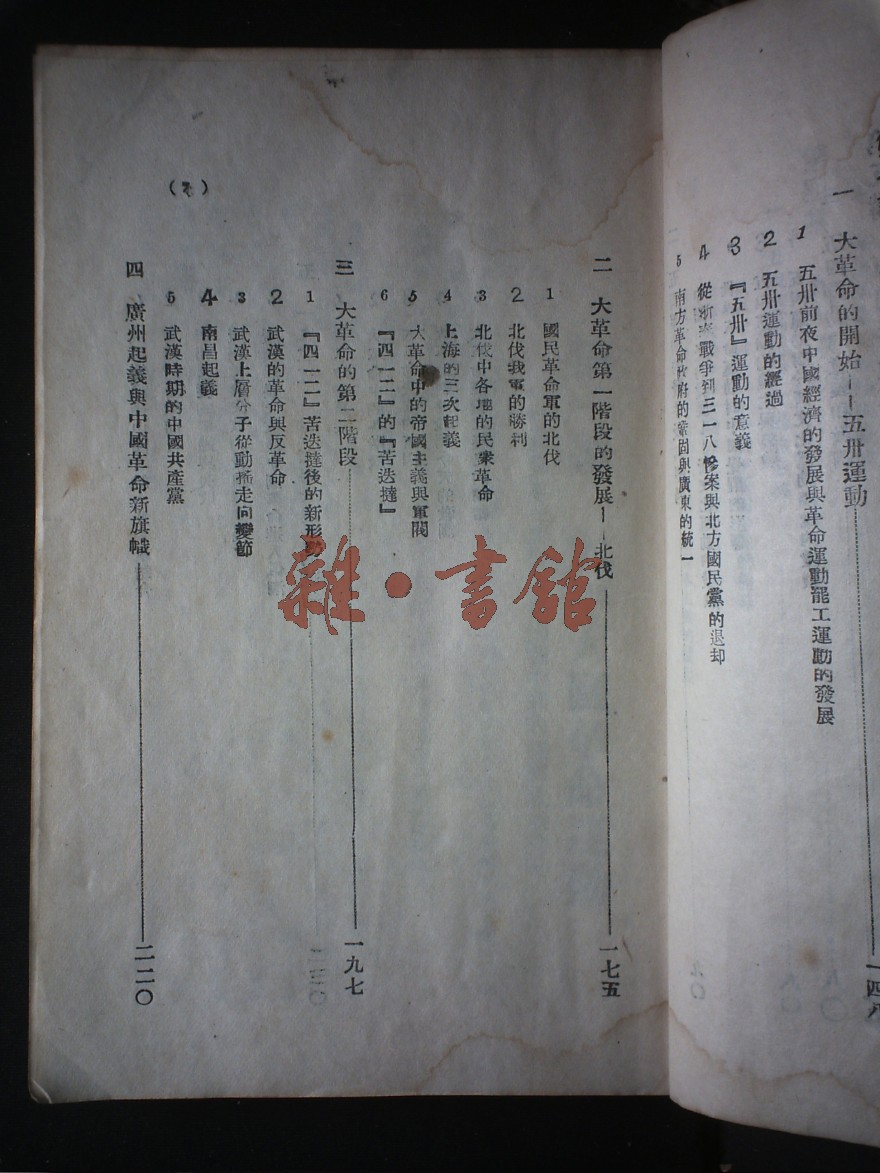 一 大革命的開始——五卅運動 一四八
1 五卅前夜中國經濟的發展與革命運動罷工運動的發展
2 五卅運動的經過
3 『五卅』運動的意義
4 從浙奉戰爭到三一八慘案與北方國民黨的退却
5 南方革命政府的鞏固與廣東的統一
二 大革命第一階段的發展——北伐 一七五
1 國民革命軍的北伐
2 北伐我軍的勝利
3 北伐中各地的民衆革命
4 上海的三次起義
5 大革命中的帝國主義與軍閥
6 『四一二』的『苦迭撻』
三 大革命的第二階段 一九七
1 『四一二』苦迭撻後的新形勢
2 武漢的革命與反革命
3 武漢上層分子從動搖走向變節
4 南昌起義
5 武漢時期的中國共產黨
四 廣州起義與中國革命新旗幟 二二〇
雜·書館